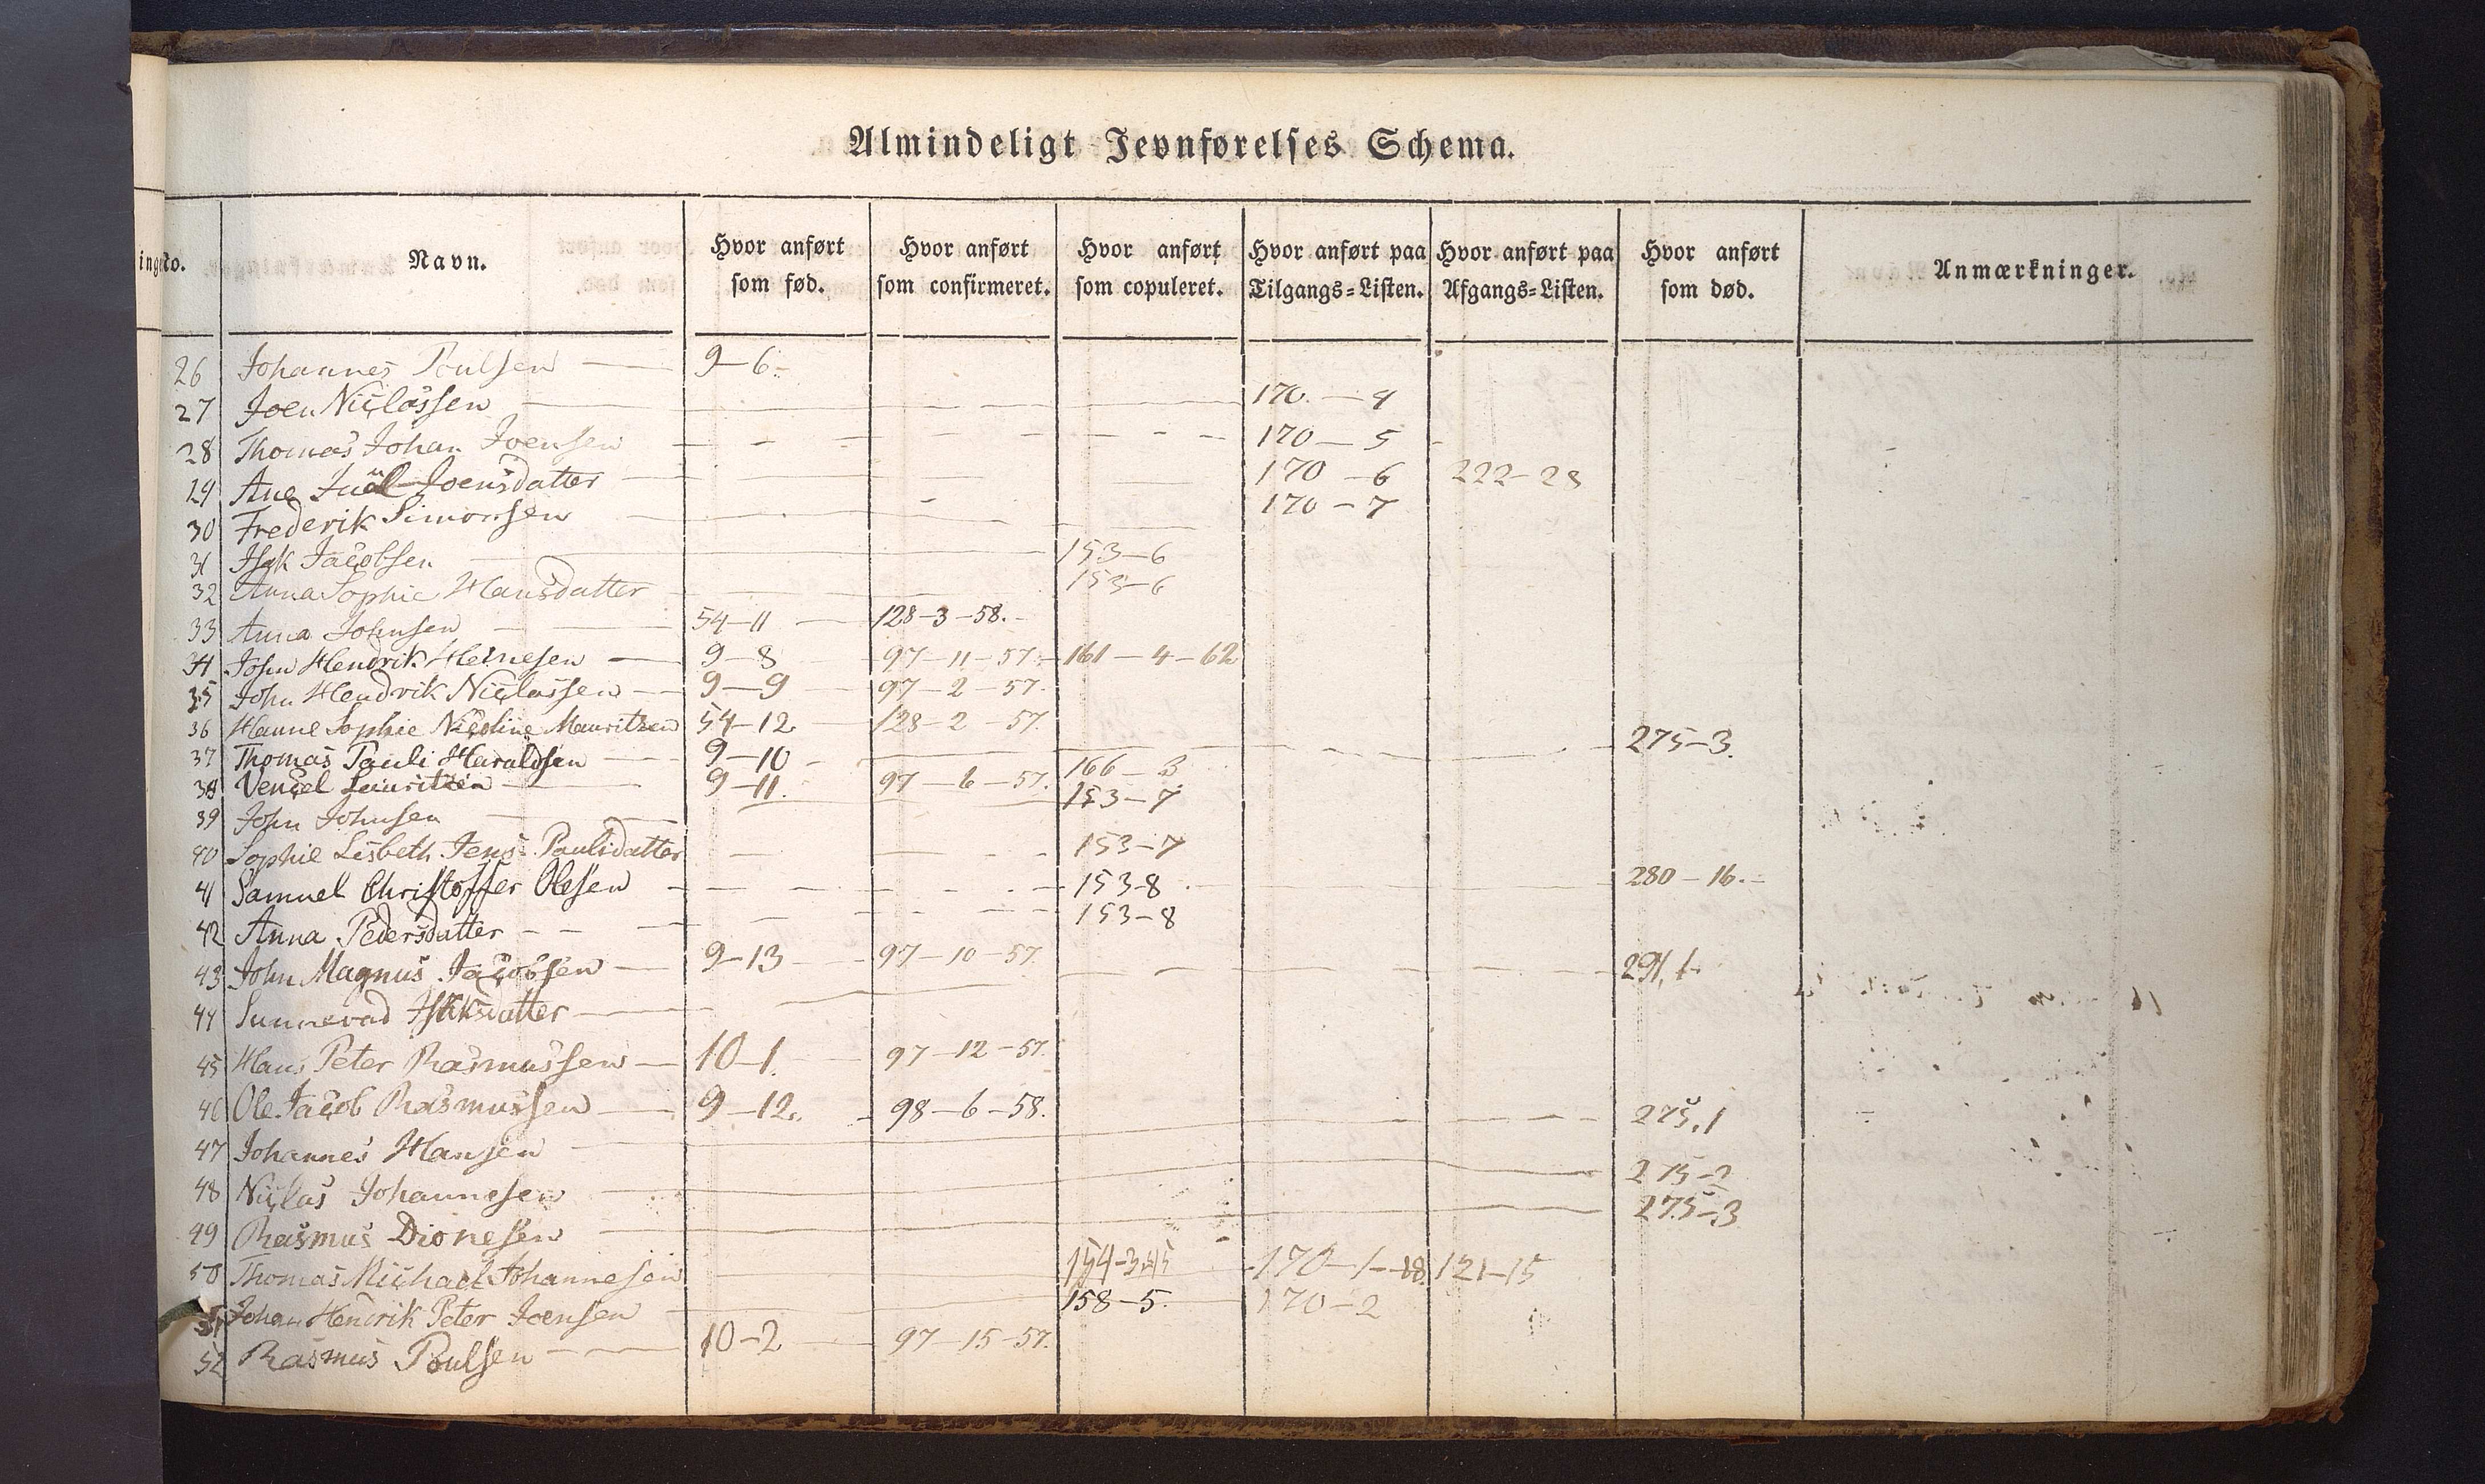 Almindeligt Jevnførelses Schema.
No. Navn. Hvor anført som fød. Hvor anført som confirmeret. Hvor anført som copuleret. Hvor anført paa Tilgangs=Listen. Hvor anført paa Afgangs=Listen. Hvor anført som død. Anmærkninger.
26 Johannes Poulsen 9-6
27 Joen Niclassen 170-4
28 Thomas Johan Joensen 170-5
29 Ane Juel Joensdatter 170-6 222-28
30 Frederik Simonsen 170-7
31 Isak Jacobsen 153-6
32 Anna Sophie Hansdatter 153-6
33 Anna Johnsen 54-11 128-3-58.
34 John Hendrik Heinesen 9-8 97-11-57. 161-4-62
35 John Hendrik Niclassen 9-9 97-2-57.
36 Hanne Sophie Nicoline Mauritzen 54-12 128-2-57.
37 Thomas Pauli Haraldsen 9-10 275-3.
38 Vencel Lauritzen 9-11. 97-6-57. 166-3
39 John Johnsen 153-7
40 Sophie Lisbeth Jens Paulsdatter 153-7
41 Samuel Christoffer Olesen 153-8 280-16.
42 Anna Pedersdatter 153-8
43 John Magnus Jacobsen 9-13 97-10-57.
44 Sunnevad Isaksdatter 291,1.
45 Hans Peter Rasmussen 10-1. 97-12-57.
46 Ole Jacob Rasmussen 9-12. 98-6-58.
47 Johannes Hansen 275,1
48 Niclas Johannesen 275-2
49 Rasmus Dionesen 275-3
50 Thomas Michael Johannesen 170-1-18. 121-15
51 Johan Hendrik Peter Joensen 158-5. 170-2
52 Rasmus Poulsen 10-2 97-15-57.